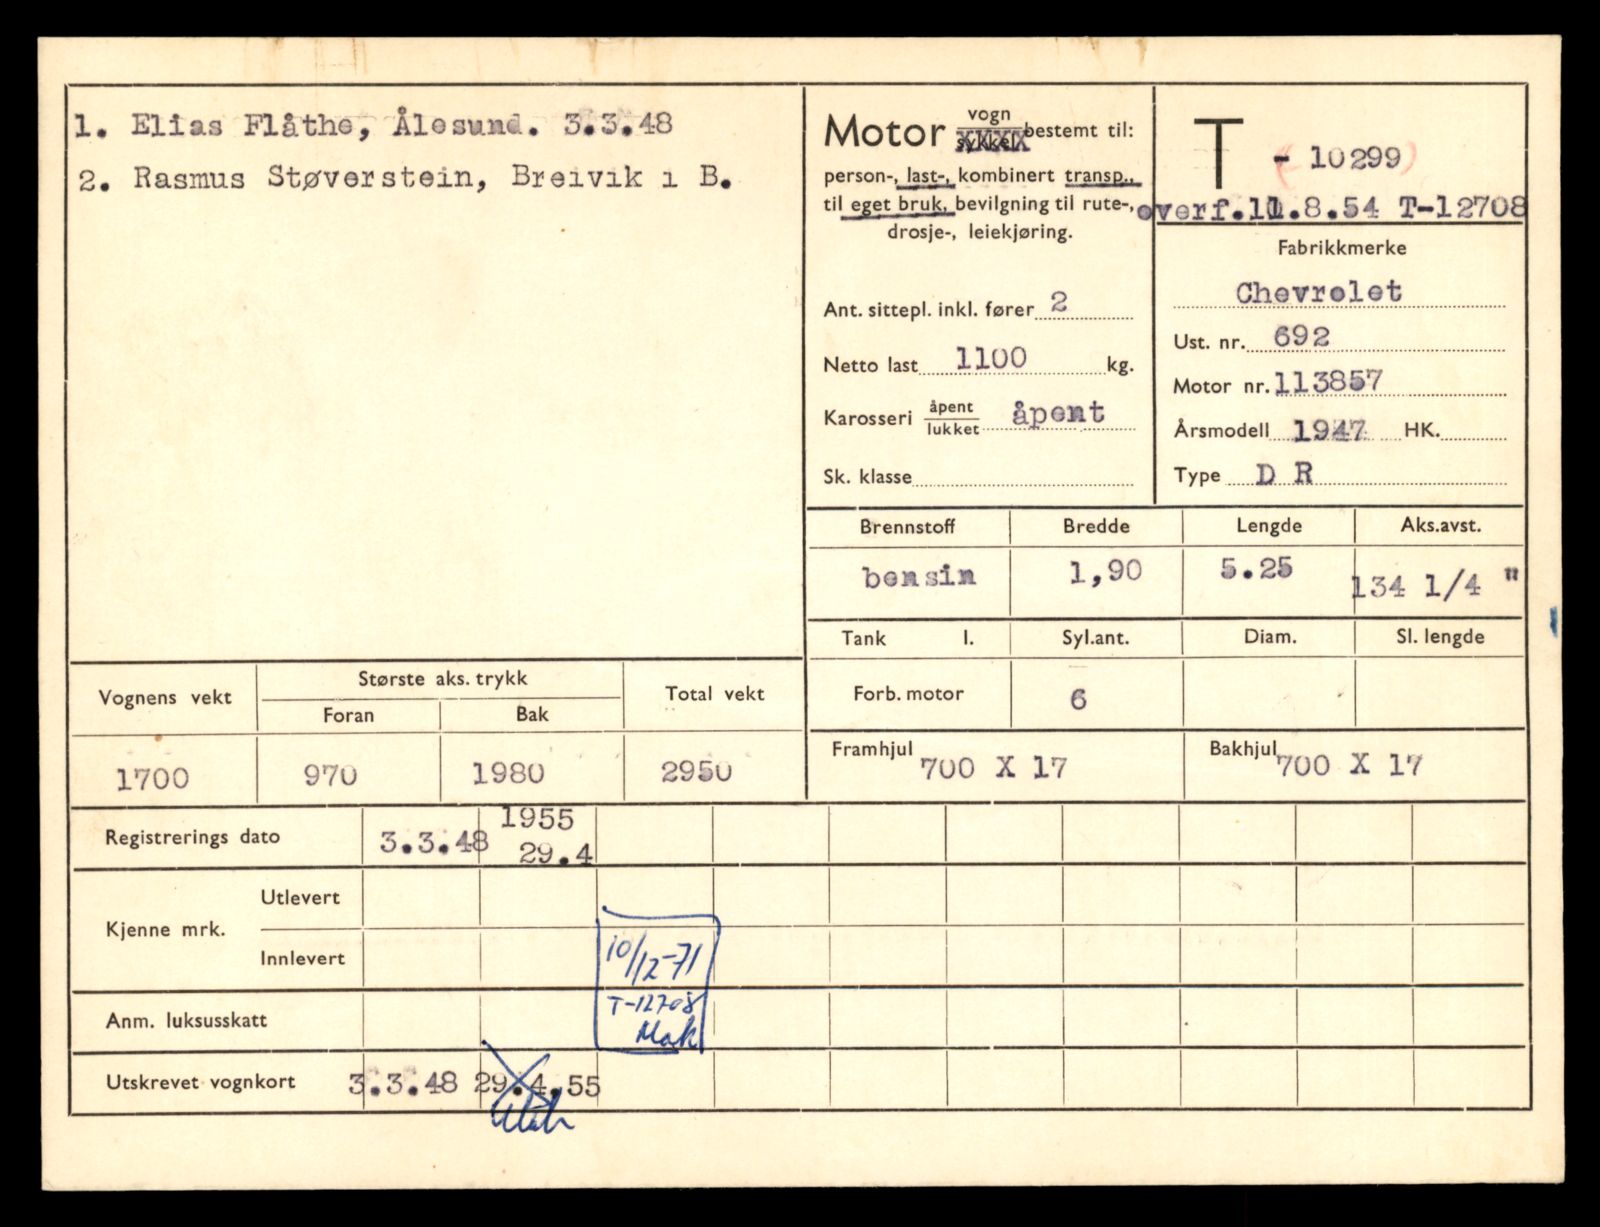 1. Elias Flåthe, Ålesund. 3.3.48
2. Rasmus Støverstein, Breivik i B.
Motor vogn
sykkel bestemt til:
person-, last-, kombinert transp.,
til eget bruk, bevilgning til rute-,
drosje-, leiekjøring.
Ant. sittepl. inkl. fører 2
Netto last 1100 kg.
Karosseri åpent
lukket åpent
Sk. klasse
T - 10299
overf.11.8.54 T-12708
Fabrikkmerke
Chevrolet
Ust. nr. 692
Motor nr. 113857
Årsmodell 1947 HK.
Type D R
Brennstoff Bredde Lengde Aks.avst.
bensin 1,90 5.25 134 1/4 "
Tank l. Syl.ant. Diam. Sl. lengde
Forb. motor 6
Framhjul 700 X 17 Bakhjul 700 X 17
Vognens vekt Største aks. trykk Total vekt
Foran Bak
1700 970 1980 2950
Registrerings dato 3.3.48 1955
29.4
Kjenne mrk. Utlevert
Innlevert 10/12-71
T-12708
Anm. luksusskatt
Utskrevet vognkort 3.3.48 29.4.55